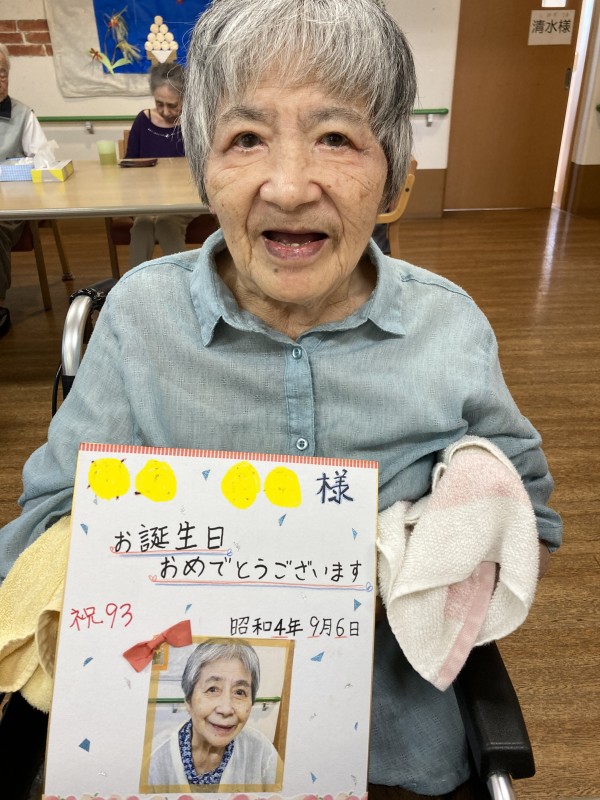 清水様
様
お誕生日
おめでとうございます
祝93
昭和4年9月6日